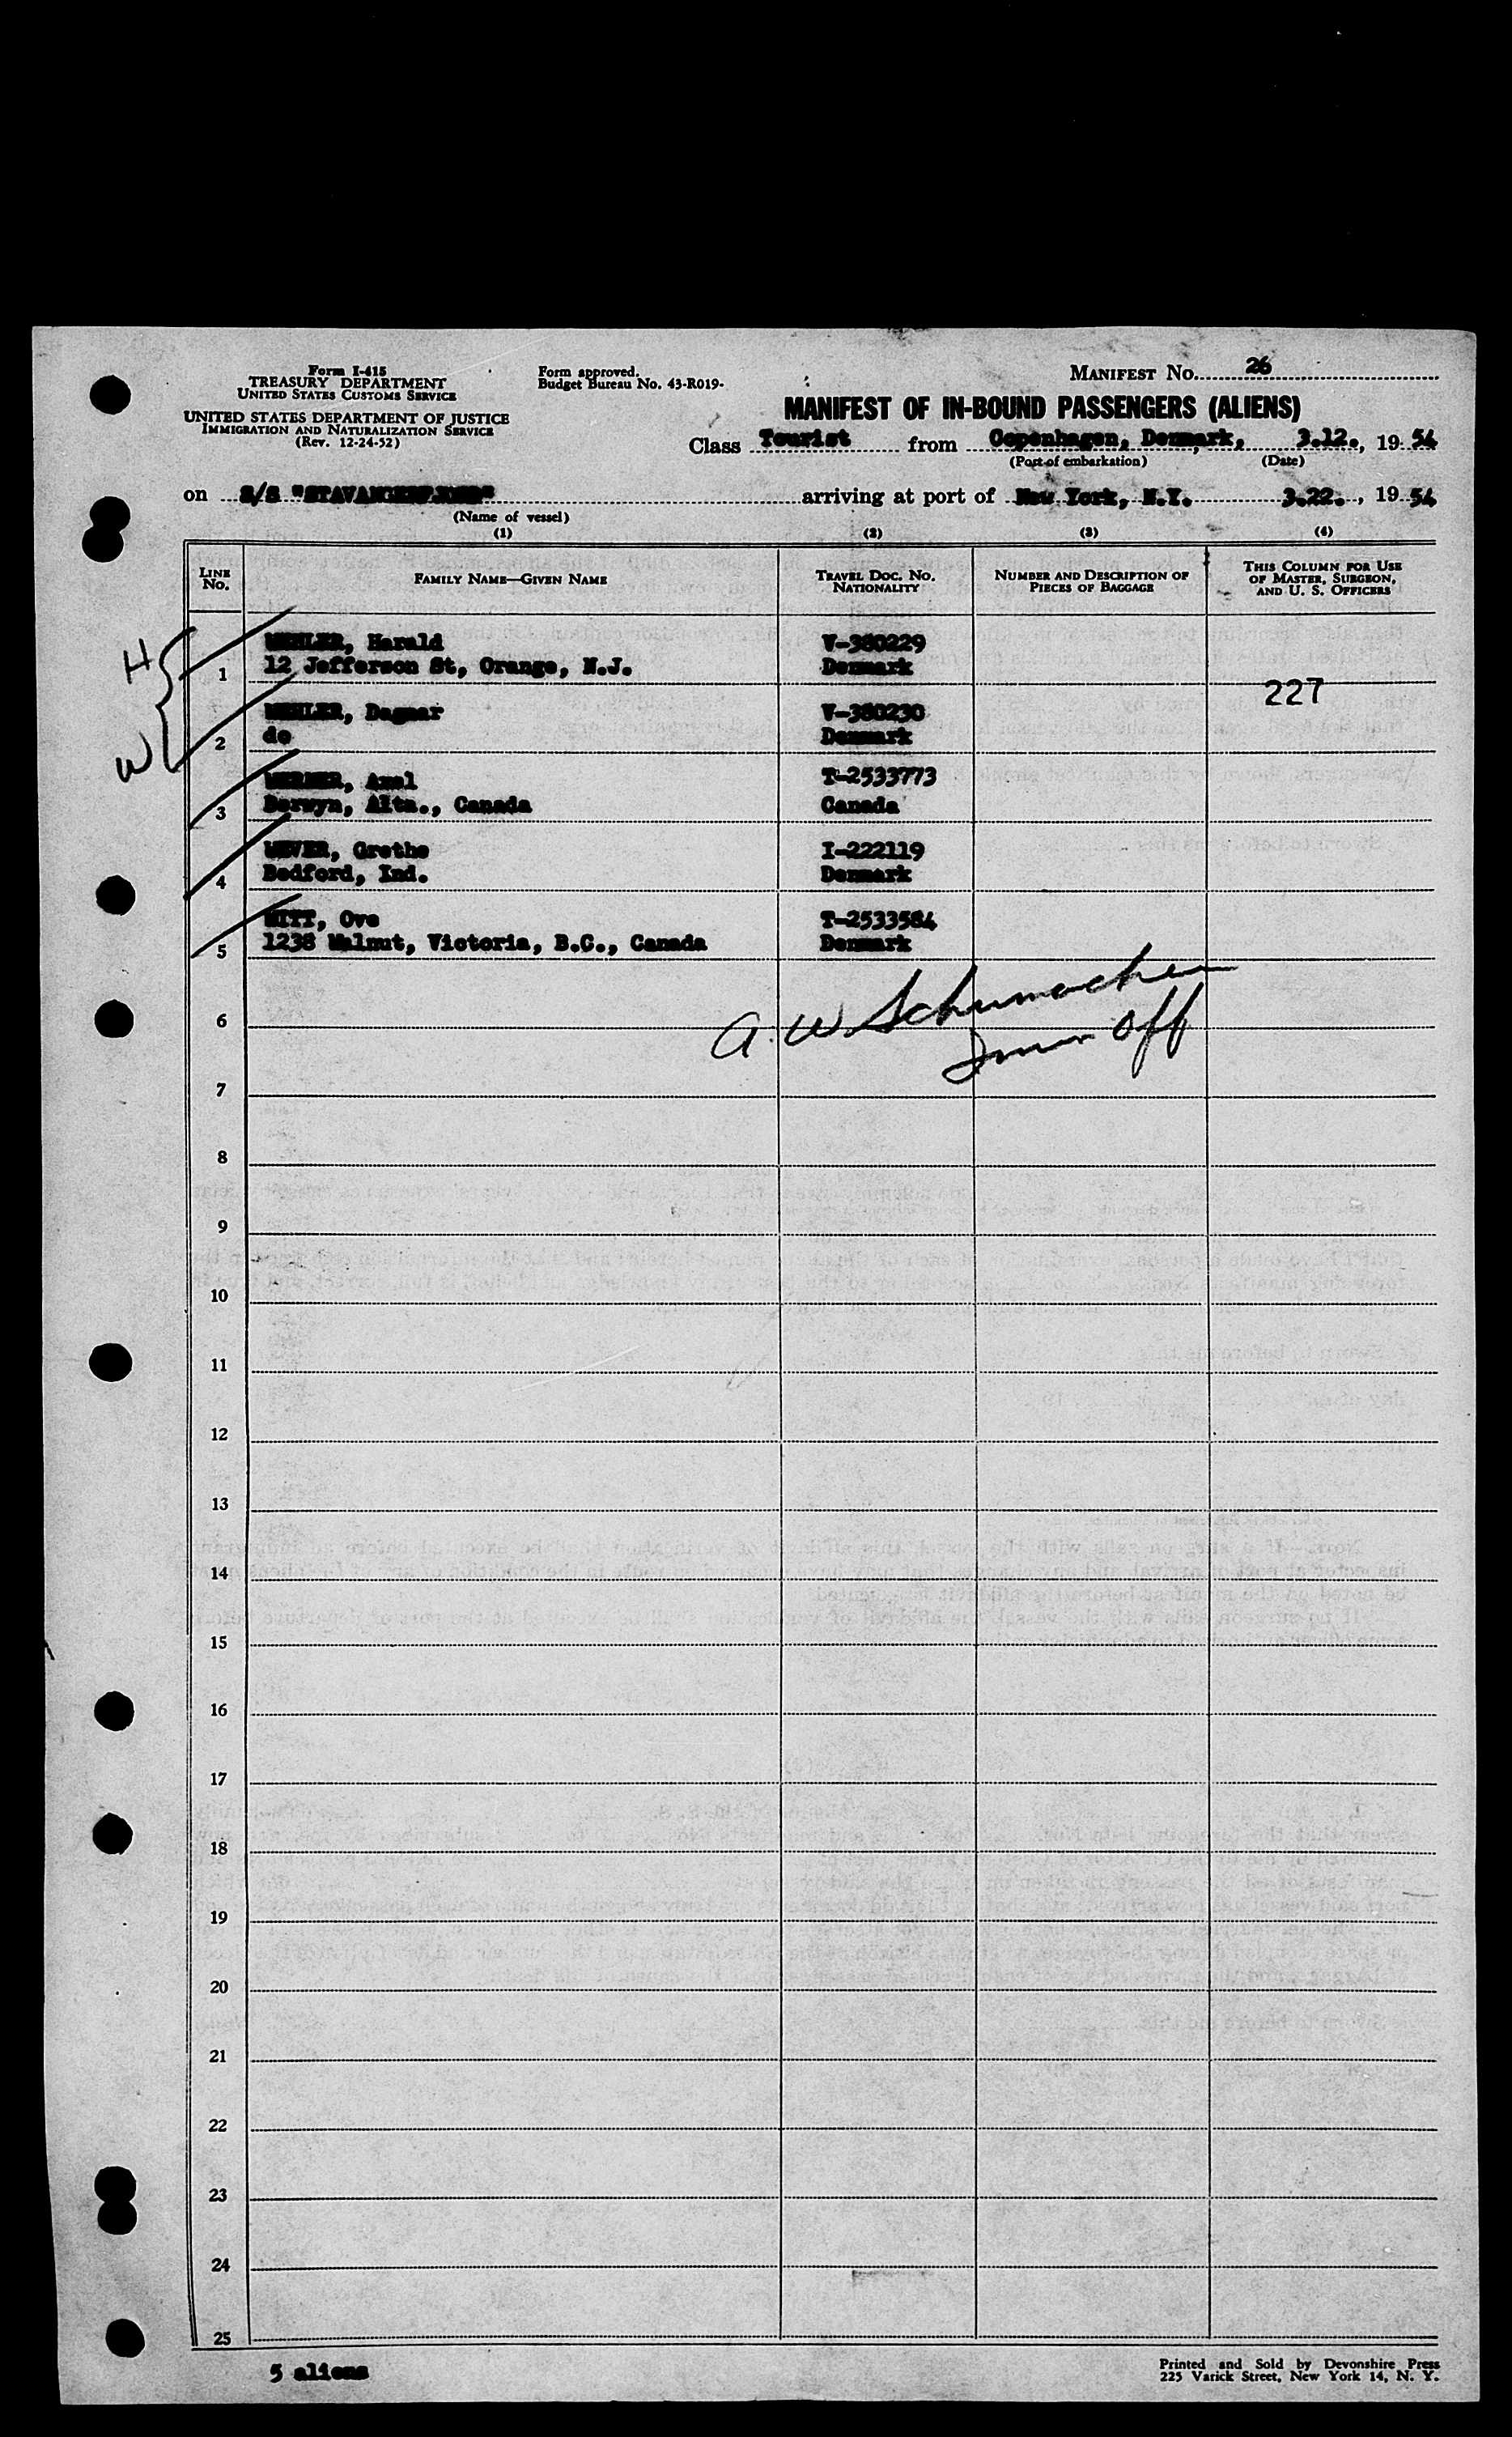 Form I-415
TREASURY DEPARTMENT
UNITED STATES CUSTOMS SERVICE
UNITED STATES DEPARTMENT OF JUSTICE
IMMIGRATION AND NATURALIZATION SERVICE
(Rev. 12-24-52)
Form approved.
Budget Bureau No. 43-R019-
MANIFEST No. 26
MANIFEST OF IN-BOUND PASSENGERS (ALIENS)
Class Tourist from Copenhagen, Denmark, 3.12., 1954
(Port of embarkation) (Date)
on S/S "STAVANGERFJORD" arriving at port of New York, N.Y. 3.22., 1954
(Name of vessel)
(1) (2) (3) (4)
LINE No. FAMILY NAME—GIVEN NAME TRAVEL DOC. NO. NATIONALITY NUMBER AND DESCRIPTION OF PIECES OF BAGGAGE THIS COLUMN FOR USE OF MASTER, SURGEON, AND U. S. OFFICERS
H Harald V-380229
1 12 Jefferson St, Orange, N.J. Denmark
227
W Dagmar V-380230
2 do Denmark
Axel T-2533773
3 Berwyn, Alta., Canada Canada
WEVER, Grethe I-222119
4 Bedford, Ind. Denmark
WITT, Ove T-2533584
5 1238 Walnut, Victoria, B.C., Canada Denmark
A. W. Schumacher
6
Imm Off
7
8
9
10
11
12
13
14
15
16
17
18
19
20
21
22
23
24
25
5 aliens
Printed and Sold by Devonshire Press
225 Varick Street, New York 14, N. Y.